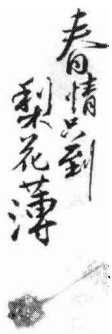 春情只到
梨花薄